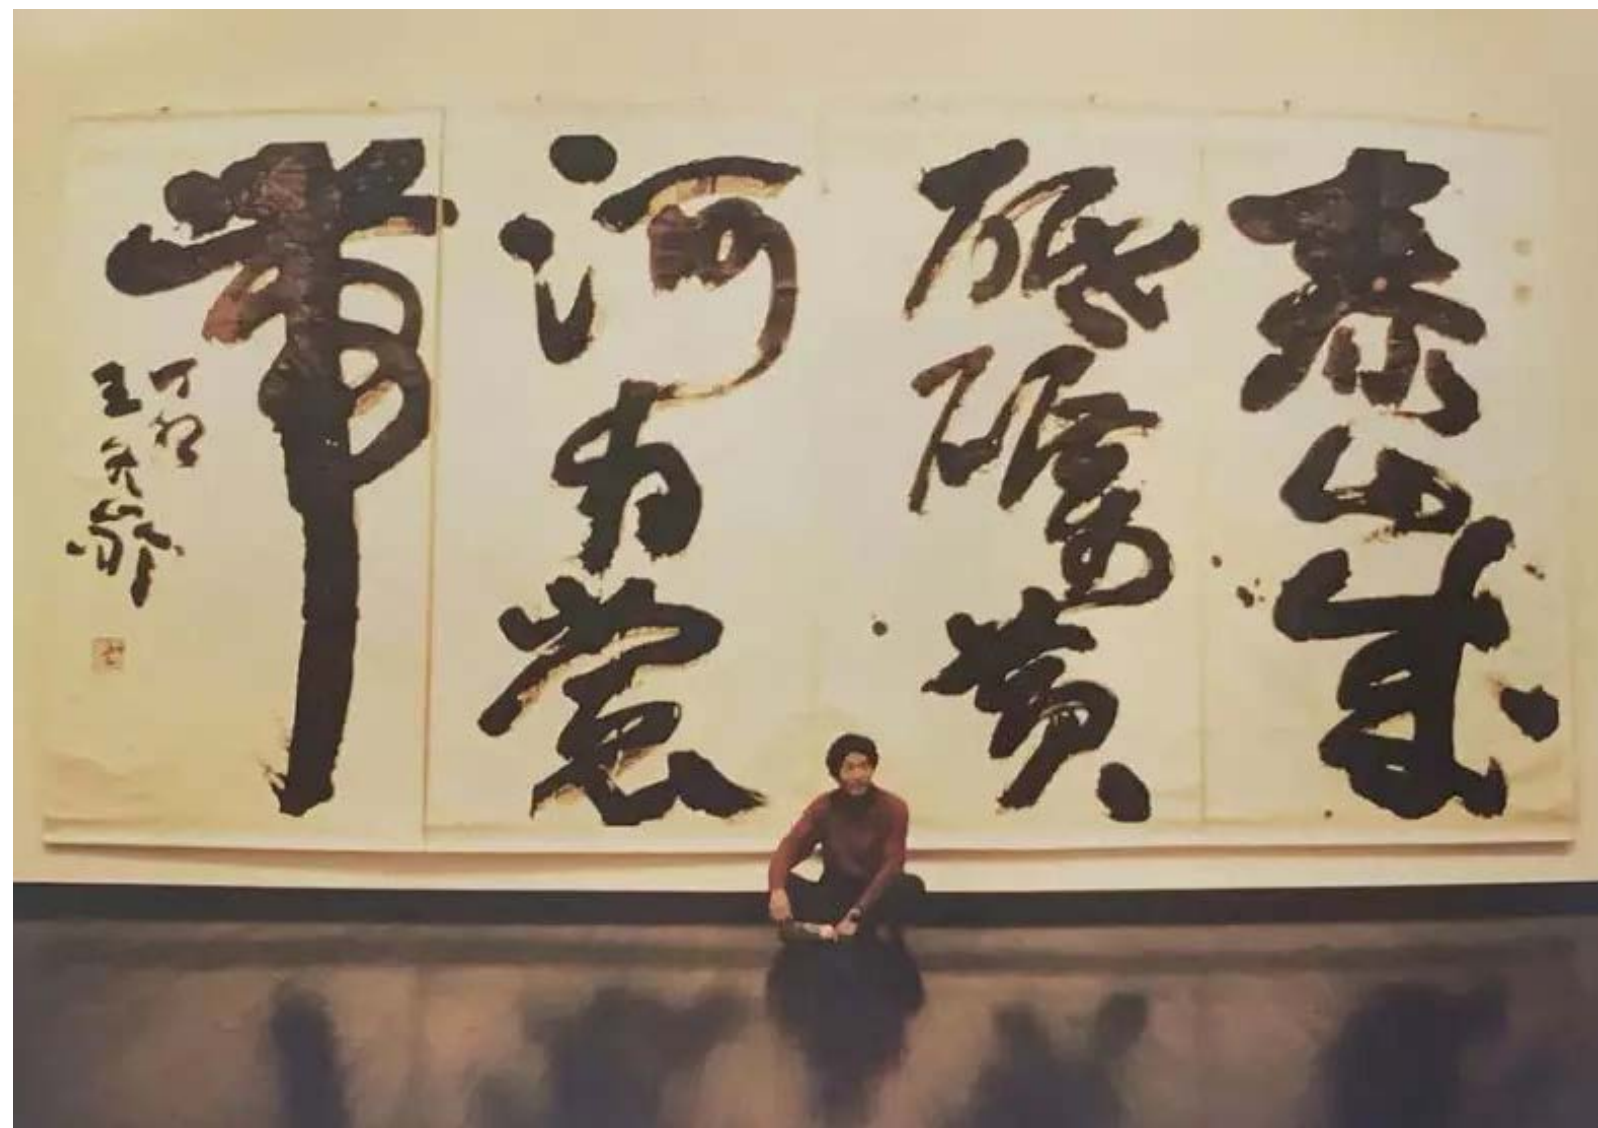 泰山成
砥礪黄
河为裳
帶
丁卯
王冬齡